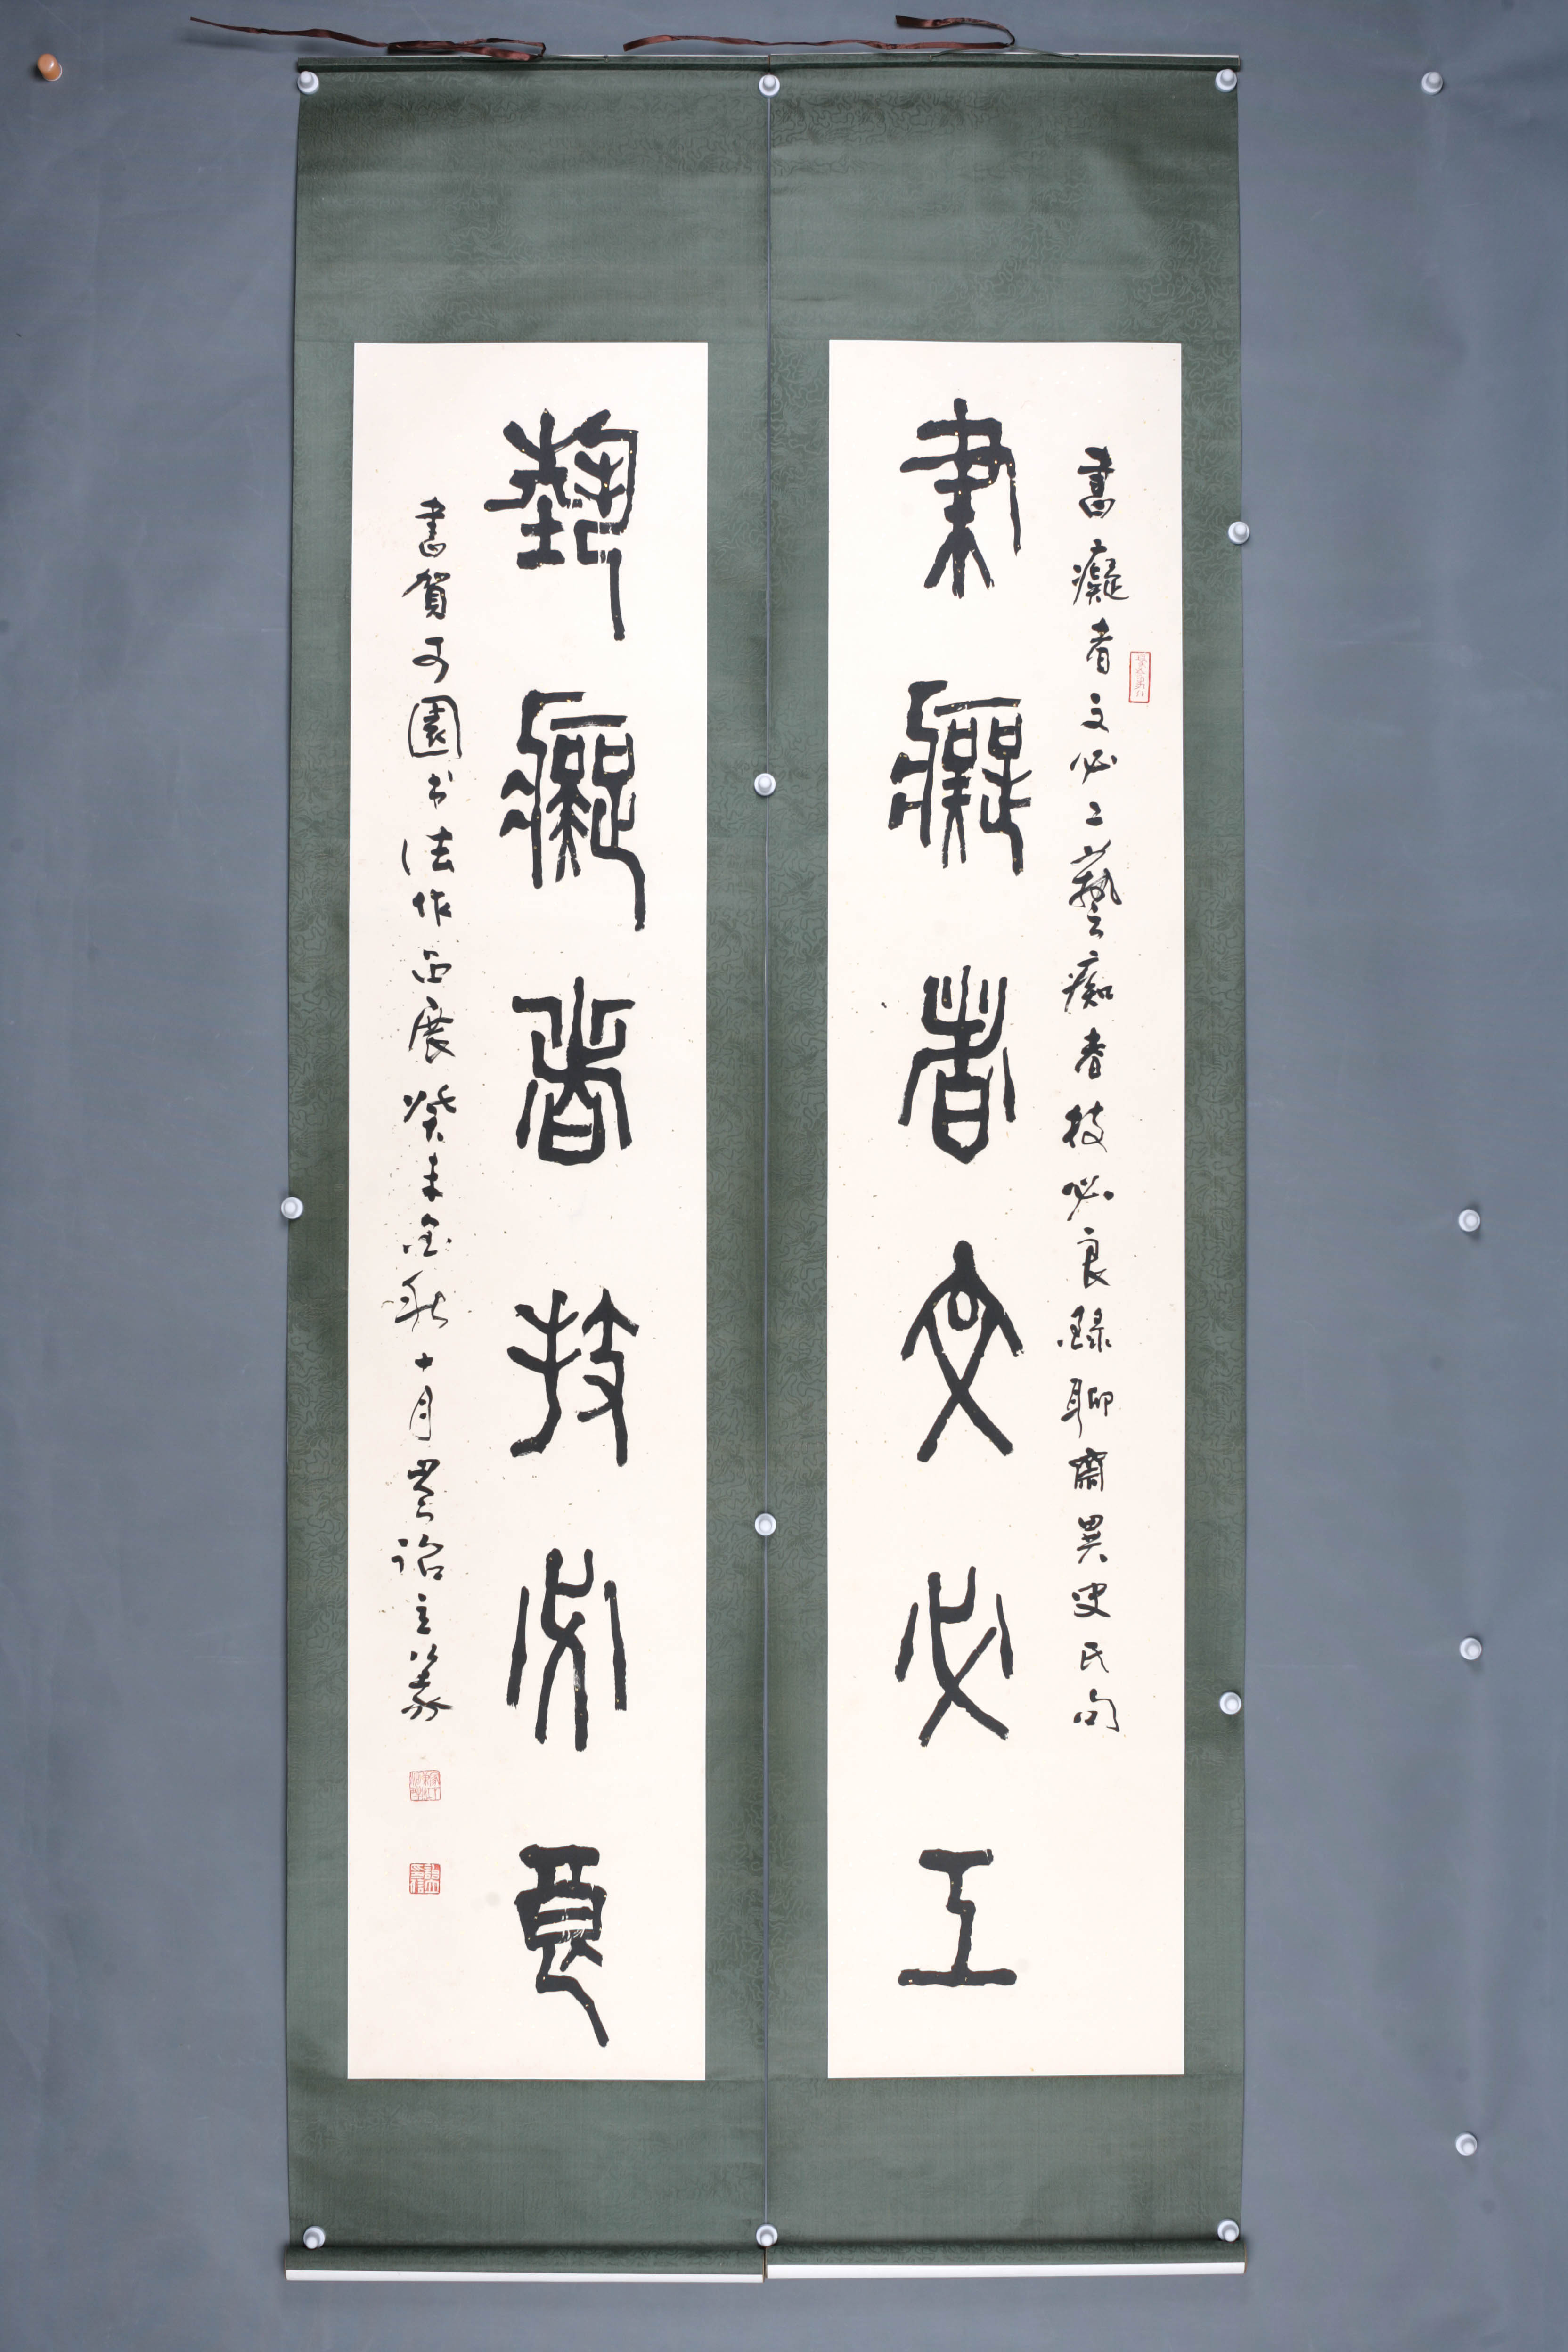 書癡者文必工藝痴者技必良錄聊齋異史氏句
書癡者文必工
藝癡者技必良
書賀可園书法作品展癸未金秋十月